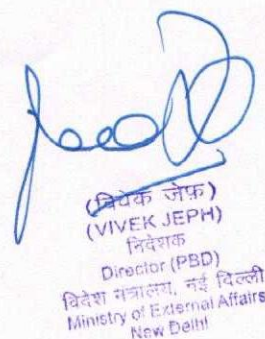 (विवेक जेफ़)
(VIVEK JEPH)
निदेशक
Director (PBD)
विदेश मंत्रालय, नई दिल्ली
Ministry of External Affairs
New Delhi